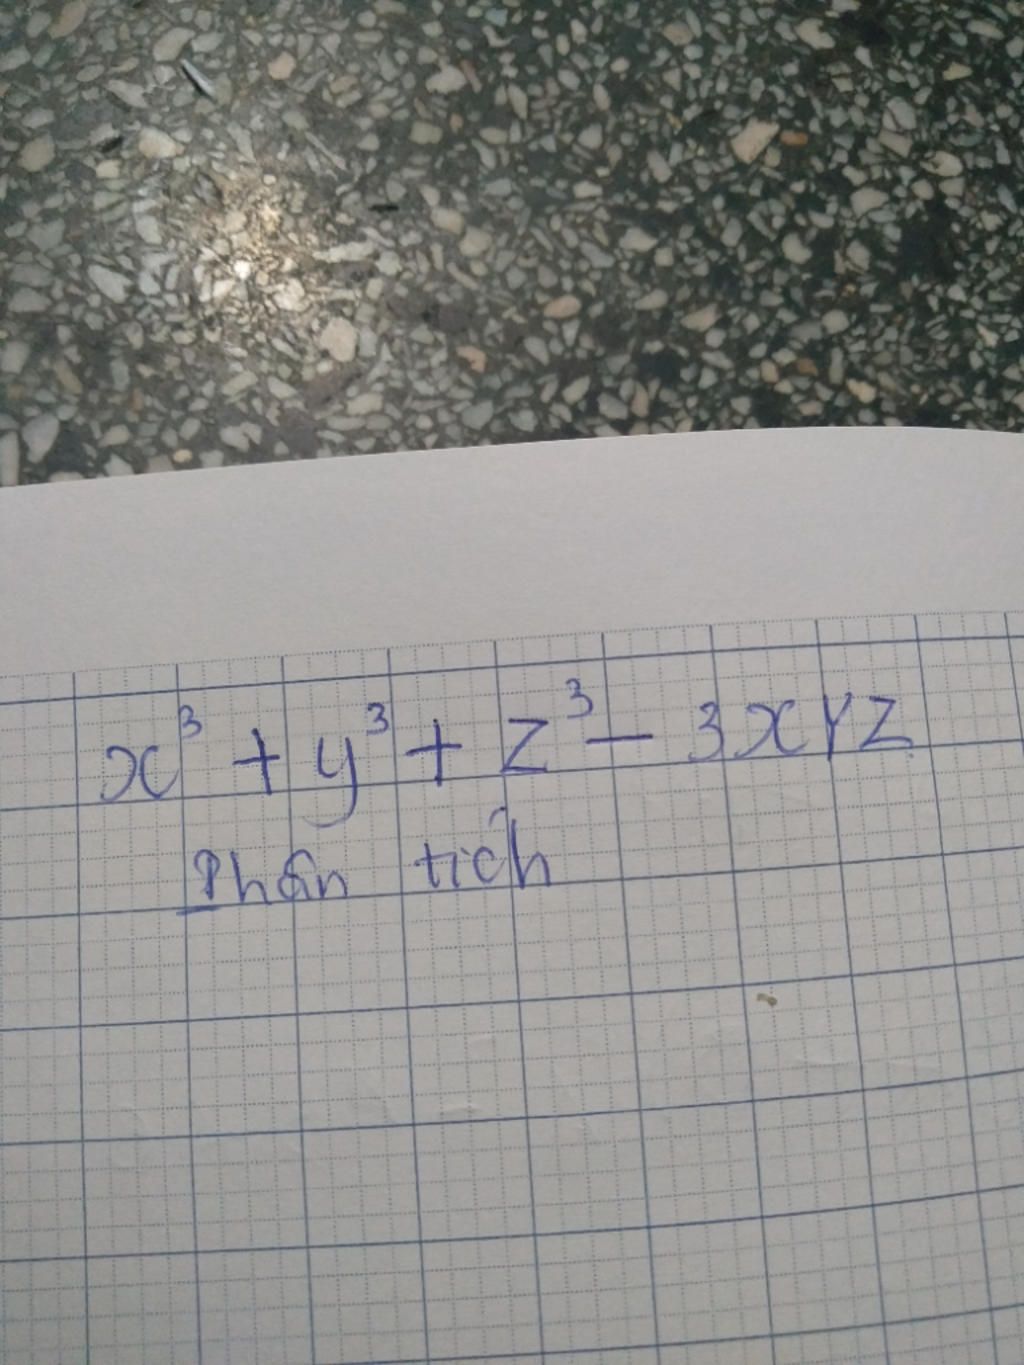 x³ + y³ + z³ - 3xyz
Phân tích